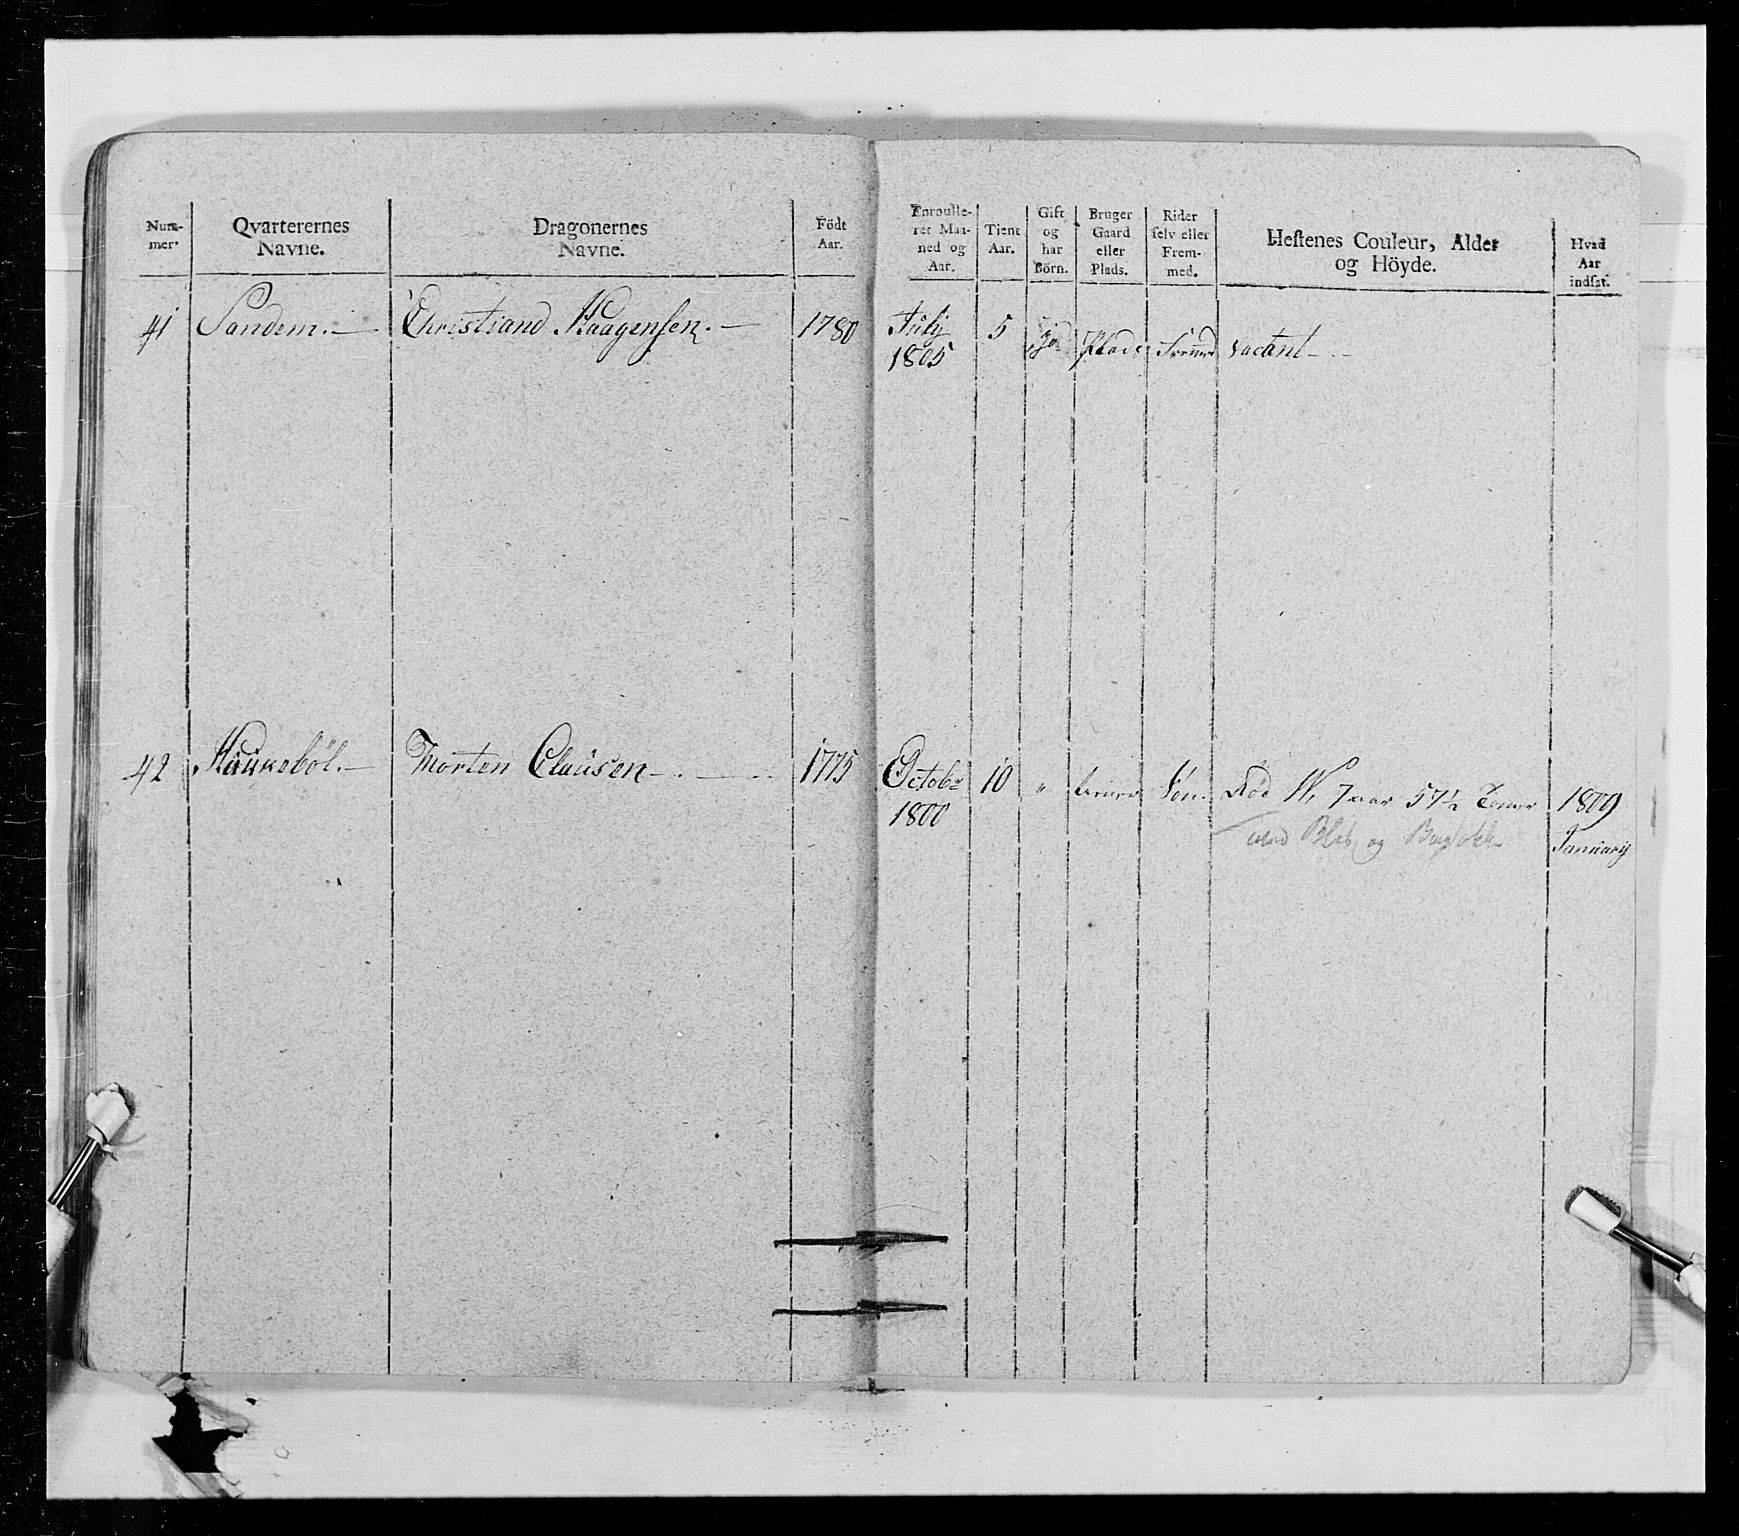 Num-
mer.
Qvarterernes
Navne.
Dragonernes
Navne.
Födt
Aar.
Enroulle-
ret Maa-
ned og
Aar.
Tient
Aar.
Gift
og
har
Börn.
Bruger
Gaard
eller
Plads.
Rider
selv eller
Frem-
med.
Hestenes Couleur, Alder
og Höyde.
Hvad
Aar
indsat.
41 Sandem. Christiand Haagensen. 1780 July 5 Plads vacant
1805
42 Haukeböl. Morten Clausen 1775 Octobr 10 " Sön Röd 7 aar 57½ 1809
1800 med Blis og January